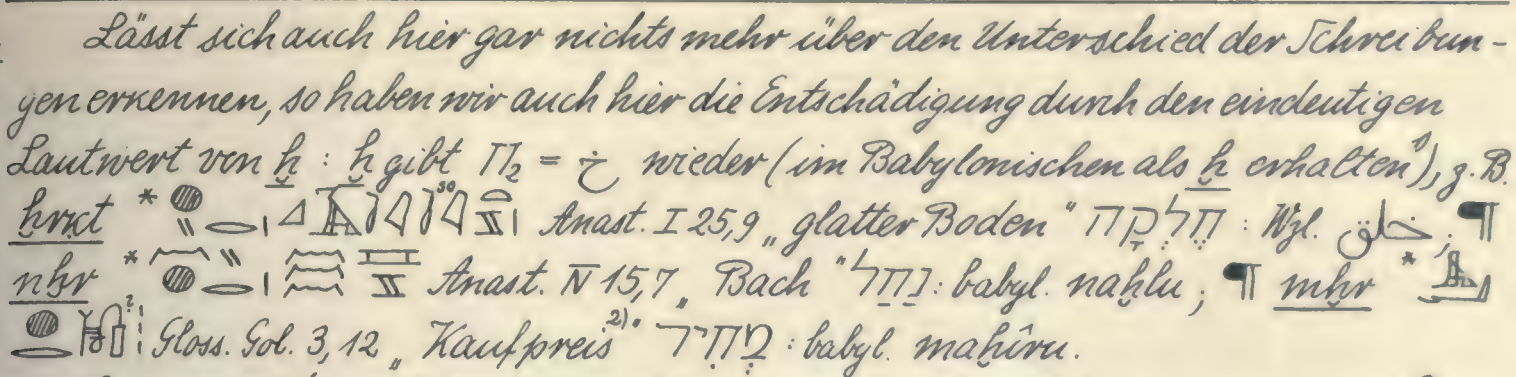 Lässt sich auch hier gar nichts mehr über den Unterschied der Schreibun-
gen erkennen, so haben wir auch hier die Entschädigung durch den eindeutigen
Lautwert von ḫ : ḫ gibt ח₂ = خ wieder (im Babylonischen als ḫ erhalten¹⁾), z.B.
ḫrkt * Anast. I 25,9 „glatter Boden“ חֶלְקָה : Wzl. خلق; ¶
nḫr * Anast. IV 15,7 „Bach“ נַחַל : babyl. naḫlu; ¶ mḫr *
Gloss. Gol. 3,12 „Kaufpreis²⁾“ מְחִיר : babyl. maḫîru.